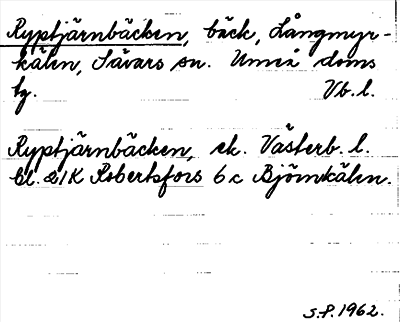 Ryptjärnbäcken, bäck, Långmyr-
kälen, Sävars sn. Umeå doms
bg. Vb. l.
Ryptjärnbäcken, ek. Västerb. l.
bl. 21K Robertsfors 6c Björnkälen.
S.P. 1962.